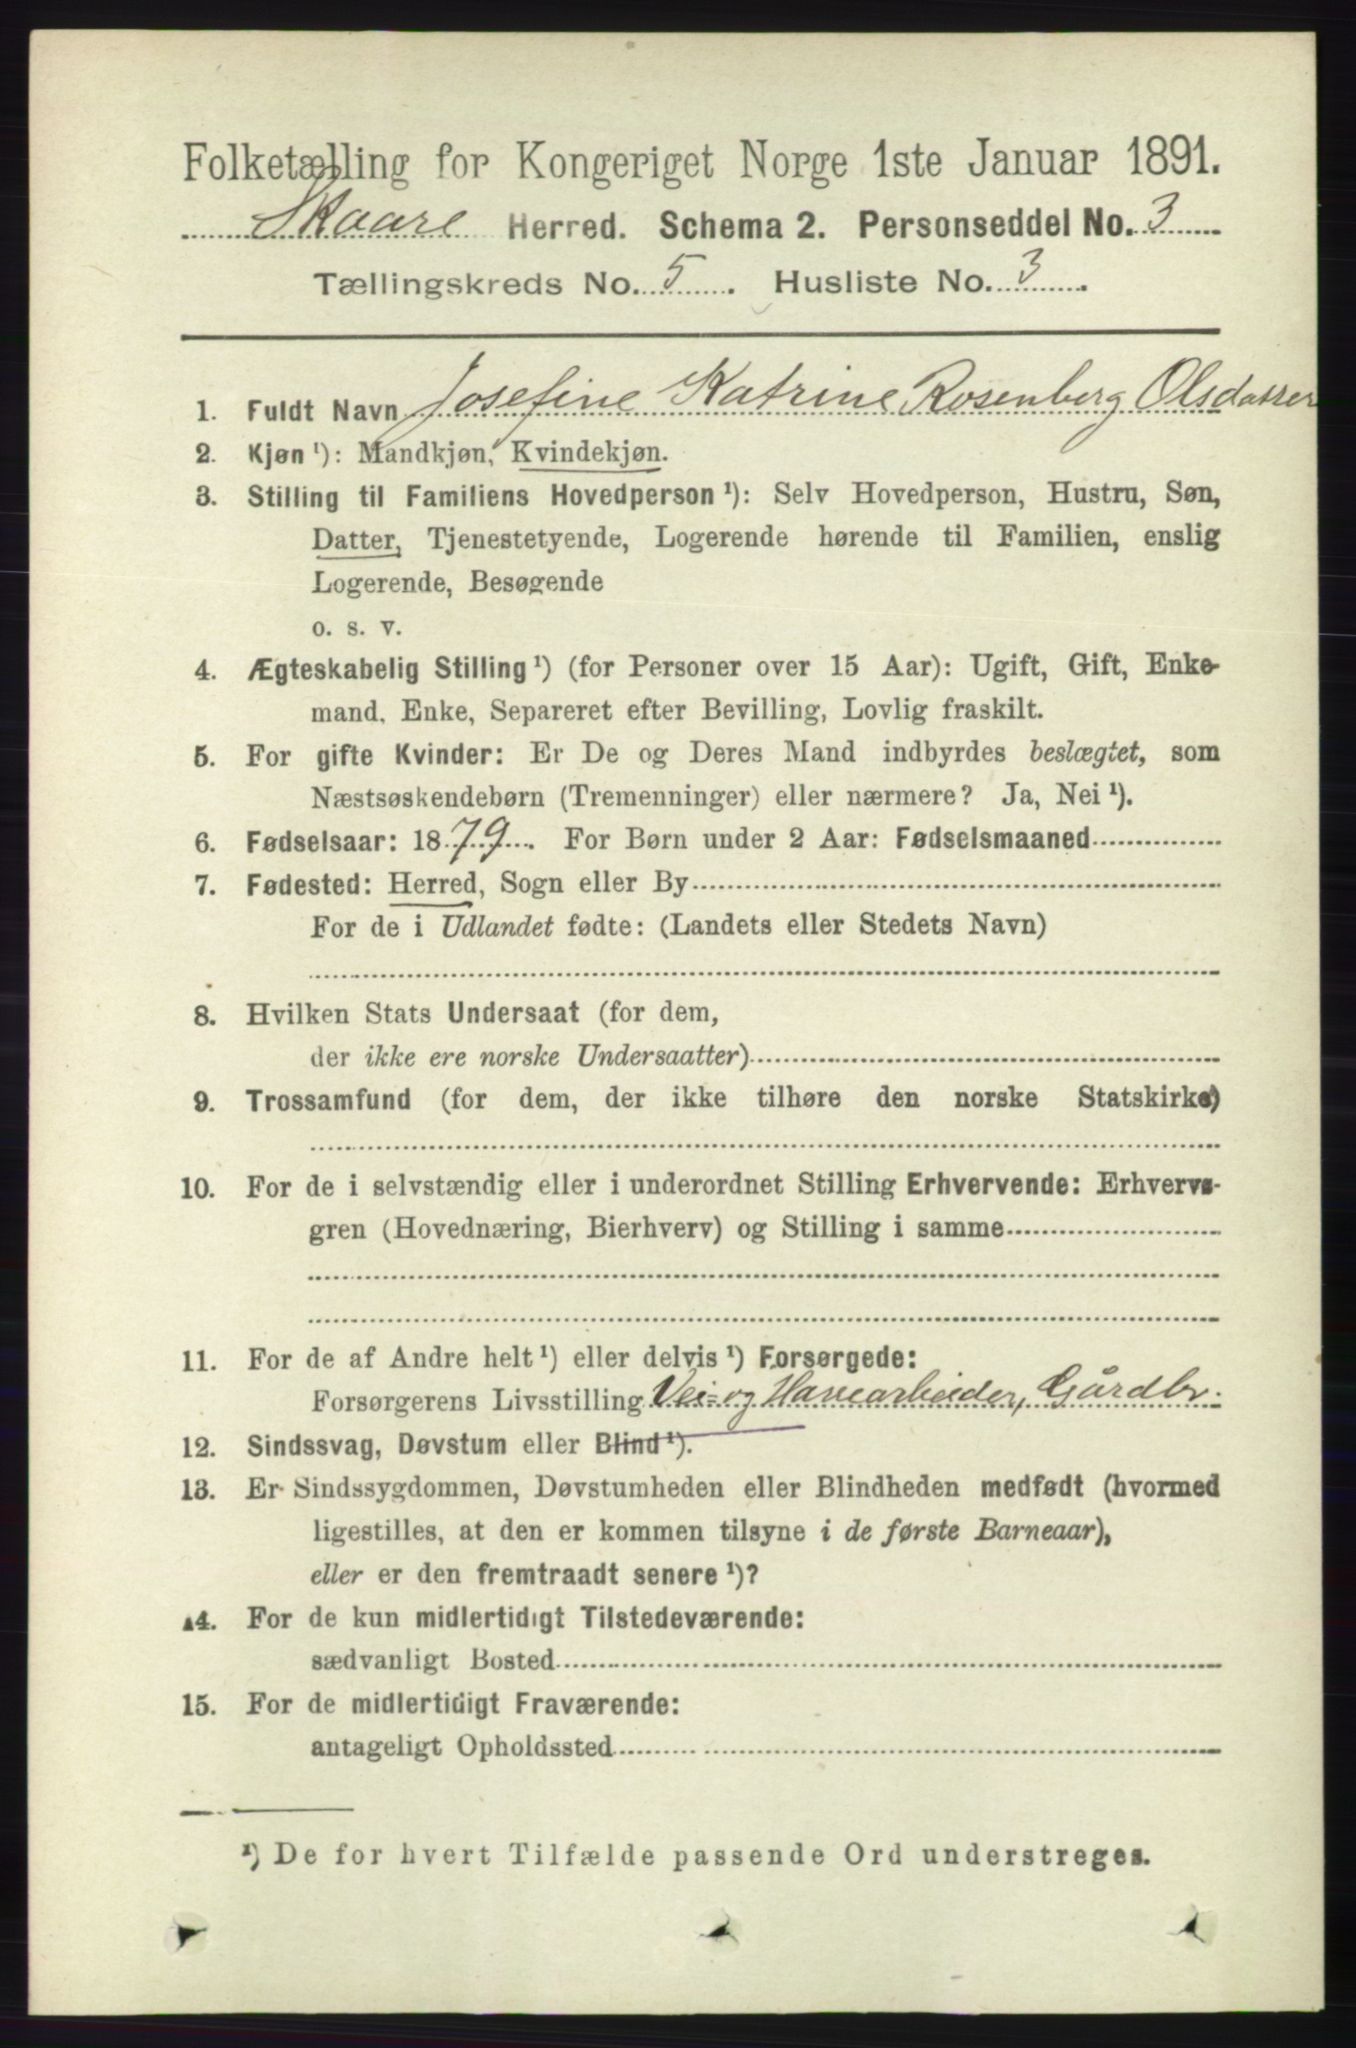 Folketælling for Kongeriget Norge 1ste Januar 1891.
Skaare Herred. Schema 2. Personseddel No. 3
Tællingskreds No. 5. Husliste No. 3.
1. Fuldt Navn Josefine Katrine Rosenberg Olsdatter
2. Kjøn ¹): Mandkjøn, Kvindekjøn.
3. Stilling til Familiens Hovedperson ¹): Selv Hovedperson, Hustru, Søn,
Datter, Tjenestetyende, Logerende hørende til Familien, enslig
Logerende, Besøgende
o. s. v.
4. Ægteskabelig Stilling ¹) (for Personer over 15 Aar): Ugift, Gift, Enke-
mand, Enke, Separeret efter Bevilling, Lovlig fraskilt.
5. For gifte Kvinder: Er De og Deres Mand indbyrdes beslægtet, som
Næstsøskendebørn (Tremenninger) eller nærmere? Ja, Nei ¹).
6. Fødselsaar: 1879. For Børn under 2 Aar: Fødselsmaaned
7. Fødested: Herred, Sogn eller By
For de i Udlandet fødte: (Landets eller Stedets Navn)
8. Hvilken Stats Undersaat (for dem,
der ikke ere norske Undersaatter)
9. Trossamfund (for dem, der ikke tilhøre den norske Statskirke)
10. For de i selvstændig eller i underordnet Stilling Erhvervende: Erhvervs-
gren (Hovednæring, Bierhverv) og Stilling i samme
11. For de af Andre helt ¹) eller delvis ¹) Forsørgede:
Forsørgerens Livsstilling Vei- og Havnearbeider, Gårdbr.
12. Sindssvag, Døvstum eller Blind ¹).
13. Er Sindssygdommen, Døvstumheden eller Blindheden medfødt (hvormed
ligestilles, at den er kommen tilsyne i de første Barneaar),
eller er den fremtraadt senere ¹)?
14. For de kun midlertidigt Tilstedeværende:
sædvanligt Bosted
15. For de midlertidigt Fraværende:
antageligt Opholdssted
¹) De for hvert Tilfælde passende Ord understreges.